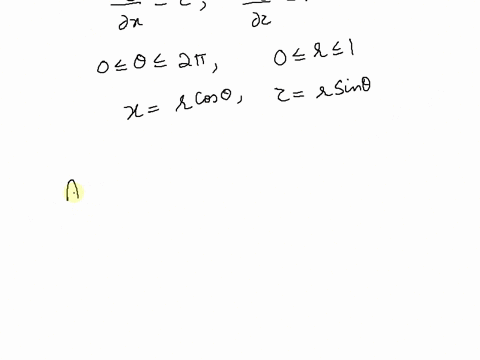 ∂x = z, ∂z
0 ≤ θ ≤ 2π, 0 ≤ r ≤ 1
x = r cosθ, z = r sinθ
A